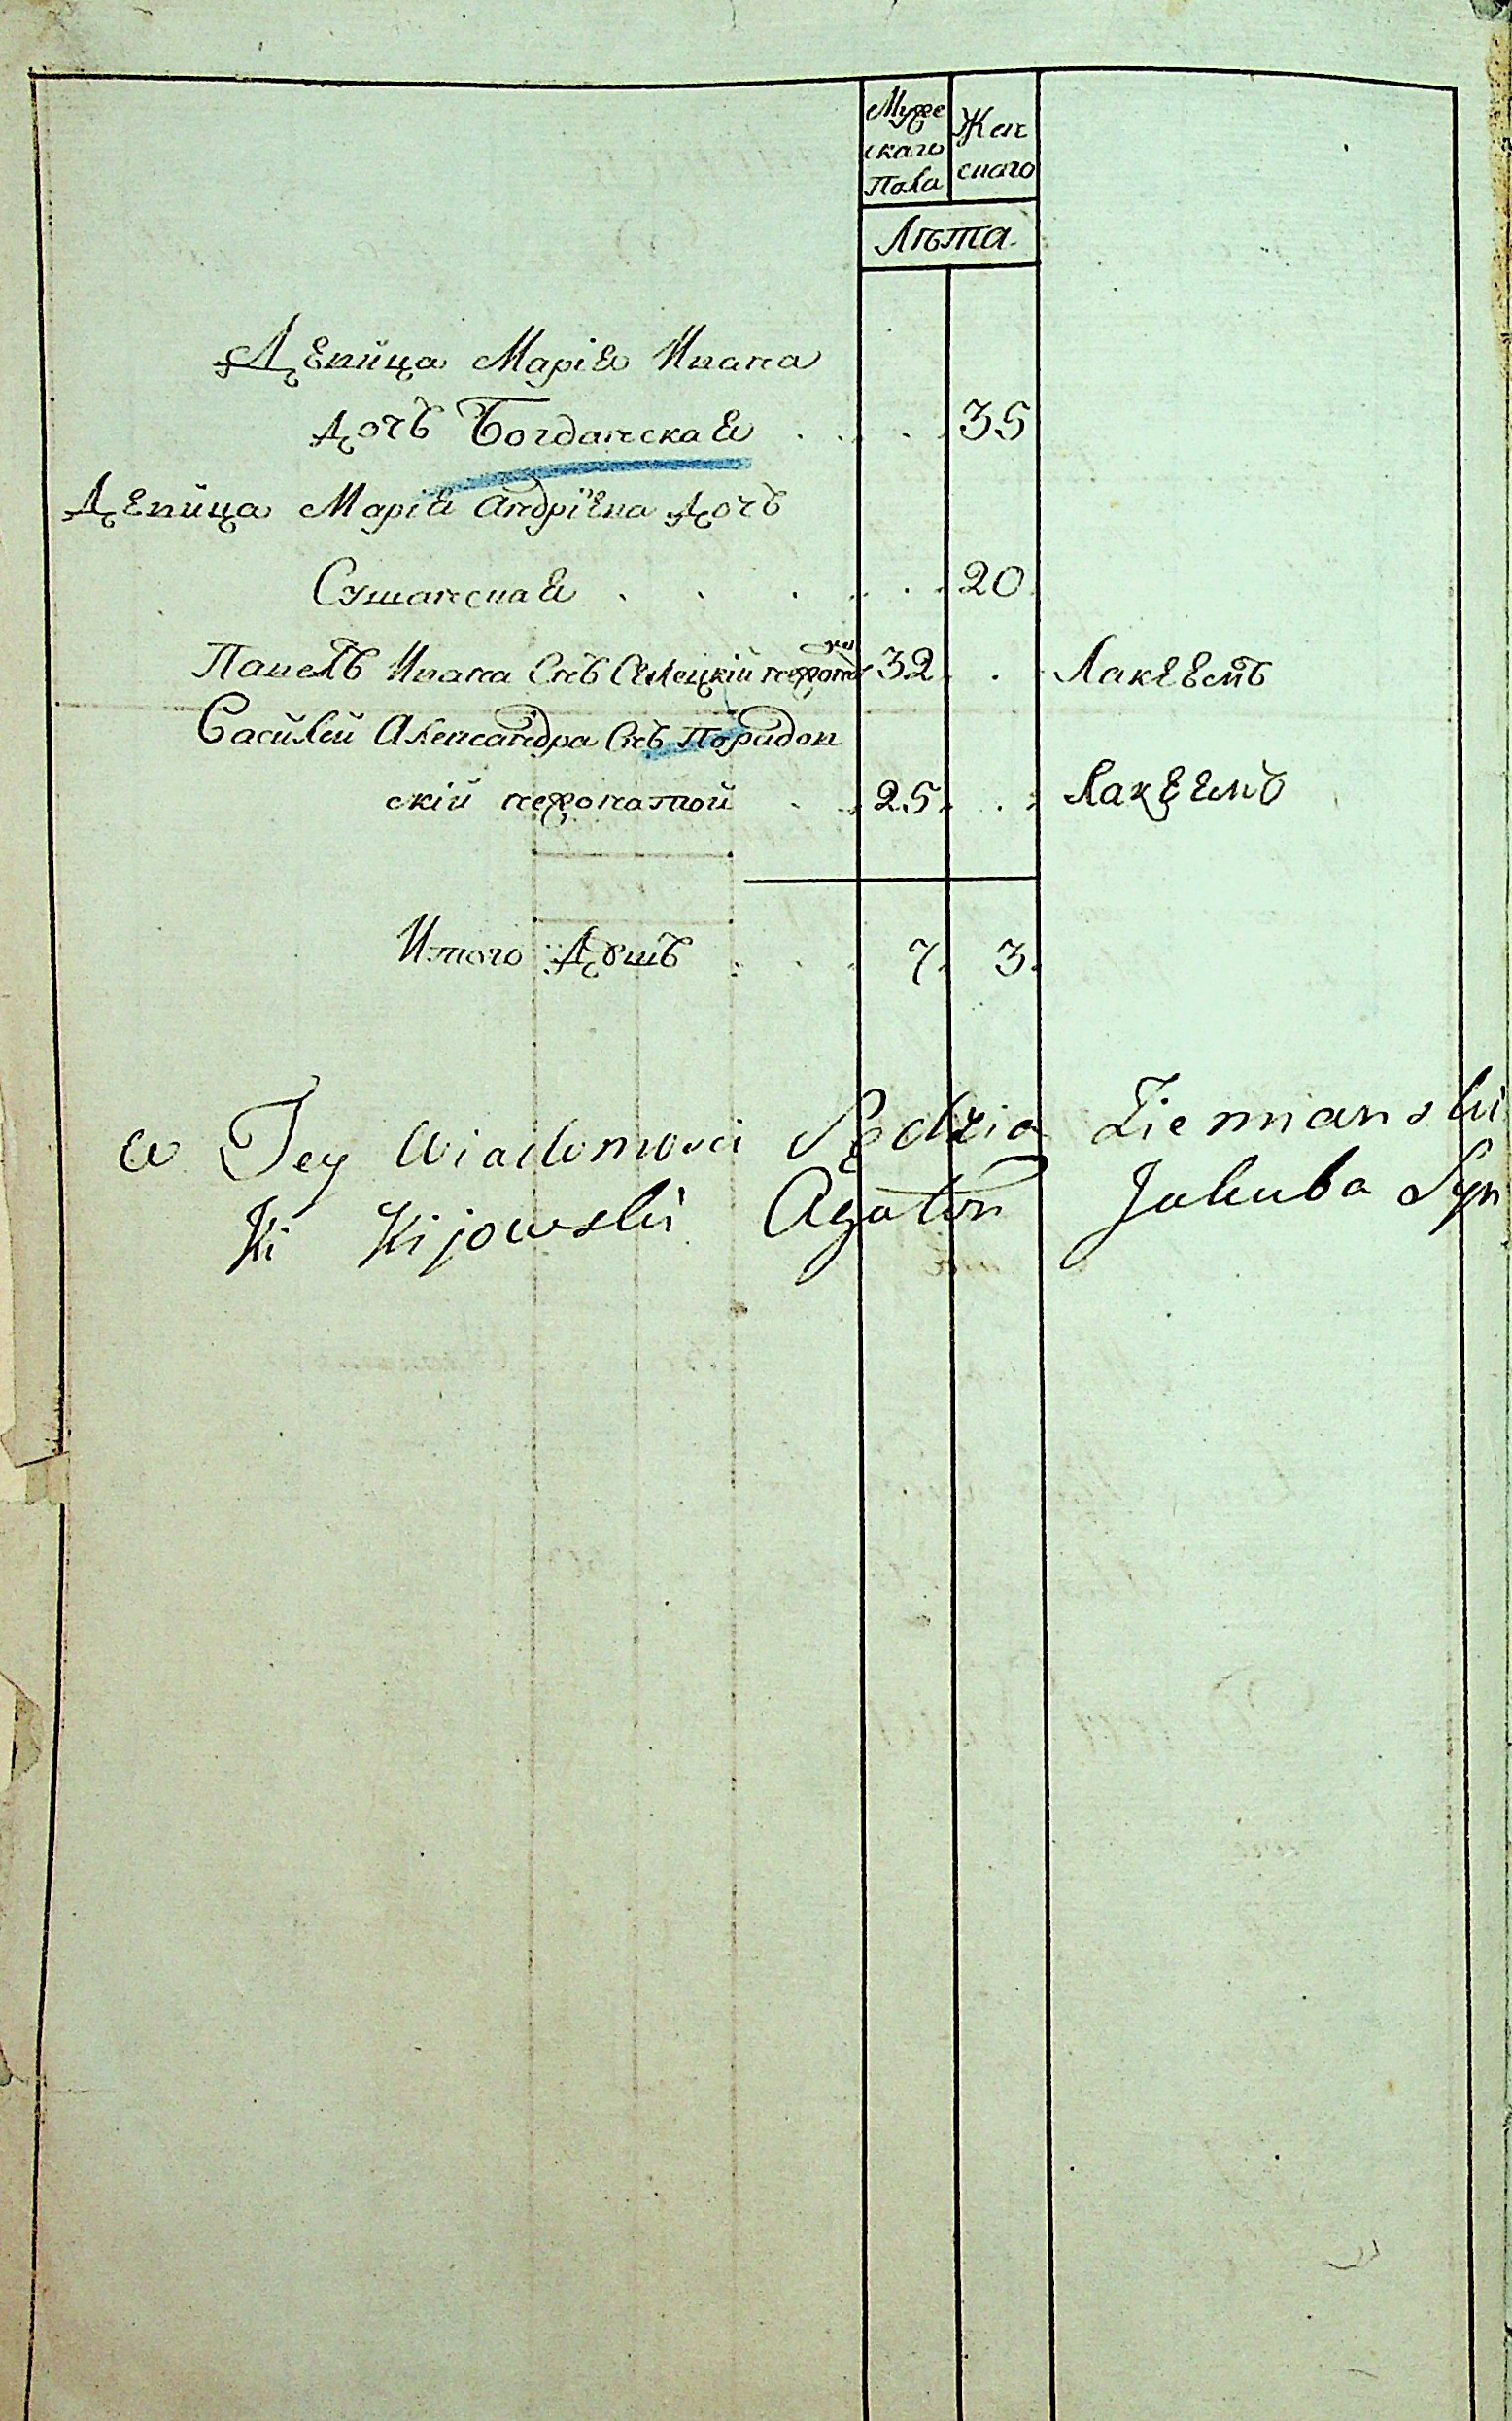 Муже Жен
скаго скаго
Пола
Лѣта
Девица Марія Ивана
дочь Богданская . . . . 35
Девица Марія Андріева дочь
Сушанская . . . . . . 20
Павелъ Ивана Снъ Селецкій нежонатой 32 . . Лакеемъ
Василей Александра Снъ Поридов
скій нежонатой . . 25 . . Лакеемъ
Итого Душъ . . . 7. 3.
w Tey Wiadomosci Sędzia Ziemianski
Ki Kijowski Agaton Jakuba Syn